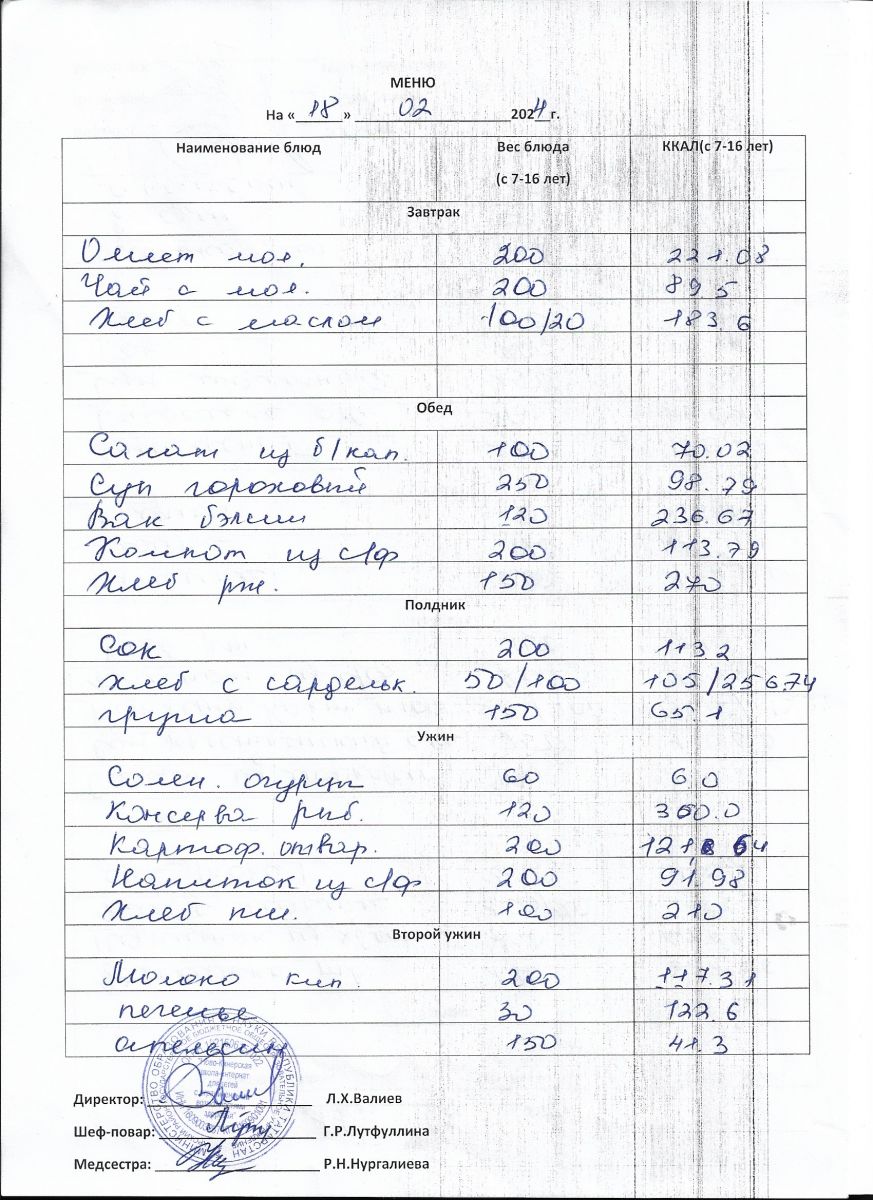 МЕНЮ
На «18» 02 2024г.
Наименование блюд Вес блюда (с 7-16 лет) ККАЛ(с 7-16 лет)
Завтрак
Омлет мол. 200 221.08
Чай с мол. 200 89.5
Хлеб с маслом 100/20 183.6
Обед
Салат из б/кап. 100 70.02
Суп гороховый 250 98.79
Вак бэлиш 120 236.67
Компот из с/ф 200 113.79
Хлеб рж. 150 270
Полдник
Сок 200 113.2
Хлеб с сардельк. 50/100 105/256.74
груша 150 65.1
Ужин
Солен. огурцы 60 6.0
Консерва рыб. 120 360.0
Картоф. отвар. 200 121.64
Напиток из с/ф 200 91.98
Хлеб пш. 100 210
Второй ужин
Молоко кип. 200 117.31
печенье 30 122.6
апельсин 150 41.3
Директор: Л.Х.Валиев
Шеф-повар: Г.Р.Лутфуллина
Медсестра: Р.Н.Нургалиева